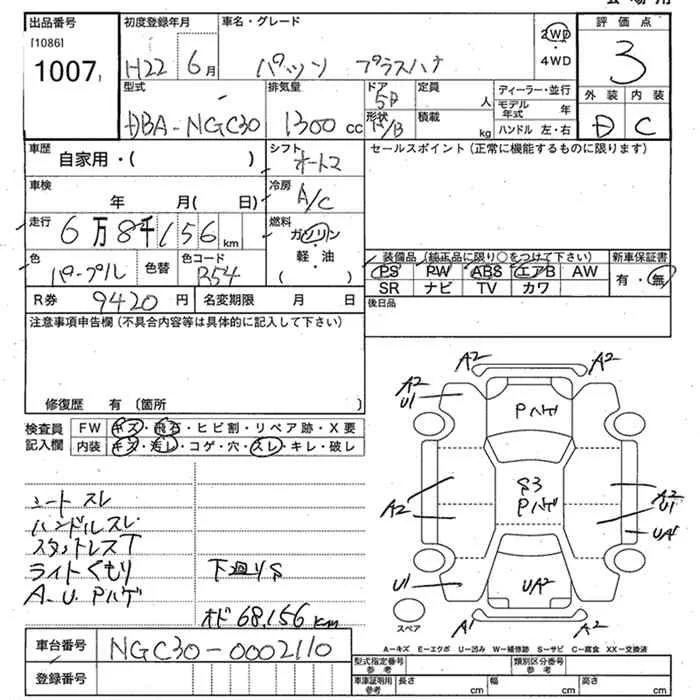 会場用
出品番号 初度登録年月 車名・グレード 評価点
[1086]
1007 H22 6月 パッソ プラスハナ 2WD・4WD 3
型式 排気量 ドア 定員 ディーラー・並行 外装 内装
DBA-NGC30 1300cc 5D 人 モデル年式 年 D C
形状 H/B 積載 kg ハンドル 左・右
車歴 シフト セールスポイント(正常に機能するものに限ります)
自家用・( ) オートマ
車検 冷房
年 月(日) A/C
走行 燃料
6万8千156km ガソリン・軽・油( )
色 色コード 装備品(純正品に限り○をつけて下さい) 新車保証書
パープル 色替 R54 PS PW ABS エアB AW 有・無
SR ナビ TV カワ
R券 9420円 名変期限 月 日 後日品
注意事項申告欄(不具合内容等は具体的に記入して下さい)
修復歴 有(箇所 )
検査員記入欄 FW キズ・飛石・ヒビ割・リペア跡・X要
内装 キズ・汚レ・コゲ・穴・スレ・キレ・破レ
A2 A2
A2 U1 Pハゲ
A2 S3 Pハゲ A2 U1
UA1
U1 UA2
A1 A2
スペア
シートスレ
ハンドルスレ
スタットレスT
ライトくもり 下廻りS
A.U.Pハゲ
オド 68,156km
A=キズ E=エクボ U=凹み W=補修跡 S=サビ C=腐食 XX=交換済
車台番号 NGC30-0002110
型式指定番号 参考 類別区分番号 参考
登録番号 車庫証明用 参考 長さ cm 幅 cm 高さ cm